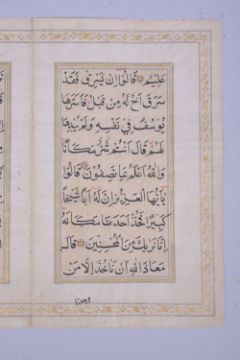 عَلِيمٌ قَالُوا إِنْ يَسْرِقْ فَقَدْ
سَرَقَ أَخٌ لَهُ مِنْ قَبْلُ فَأَسَرَّهَا
يُوسُفُ فِي نَفْسِهِ وَلَمْ يُبْدِهَا
لَهُمْ قَالَ أَنْتُمْ شَرٌّ مَكَانًا
وَاللَّهُ أَعْلَمُ بِمَا تَصِفُونَ قَالُوا
يَا أَيُّهَا الْعَزِيزُ إِنَّ لَهُ أَبًا شَيْخًا
كَبِيرًا فَخُذْ أَحَدَنَا مَكَانَهُ
إِنَّا نَرَاكَ مِنَ الْمُحْسِنِينَ قَالَ
مَعَاذَ اللَّهِ أَنْ نَأْخُذَ إِلَّا مَنْ
وجدنا